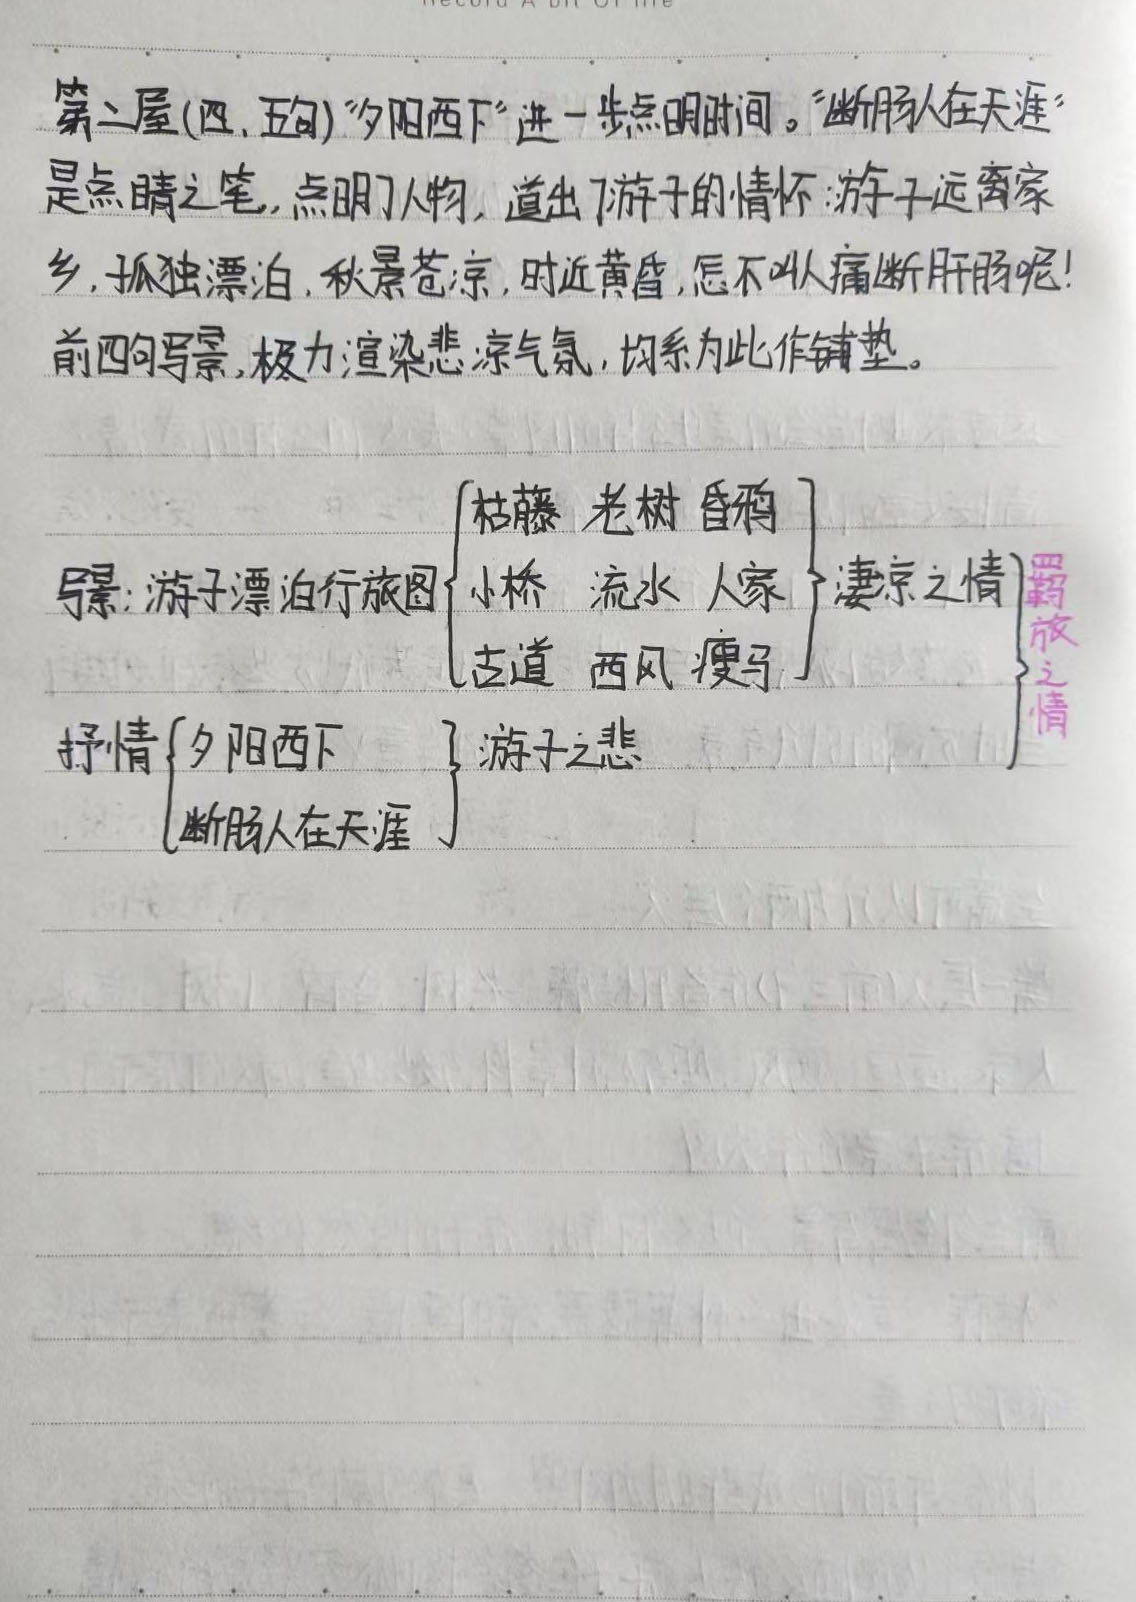 Record A bit Of life
第二屋(四、五句)“夕阳西下”进一步点明时间。“断肠人在天涯”
是点睛之笔,点明了人物,道出了游子的情怀:游子远离家
乡,孤独漂泊,秋景苍凉,时近黄昏,怎不叫人痛断肝肠呢!
前四句写景,极力渲染悲凉气氛,均系为此作铺垫。
枯藤 老树 昏鸦
写景:游子漂泊行旅图 小桥 流水 人家 凄凉之情
古道 西风 瘦马
羁旅之情
抒情 夕阳西下 游子之悲
断肠人在天涯